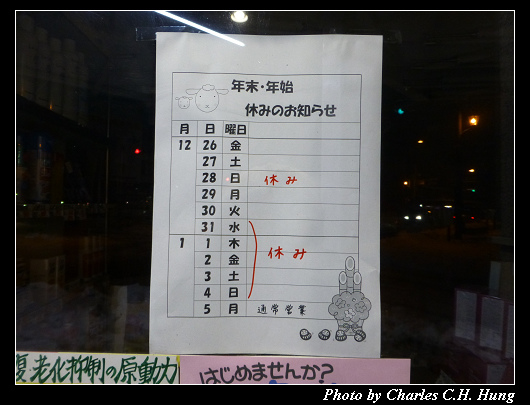 年末・年始
休みのお知らせ
月 日 曜日
12 26 金
27 土
28 日 休み
29 月
30 火
31 水
1 1 木 休み
2 金
3 土
4 日
5 月 通常営業
老化抑制の原動力
はじめませんか?
Photo by Charles C.H. Hung